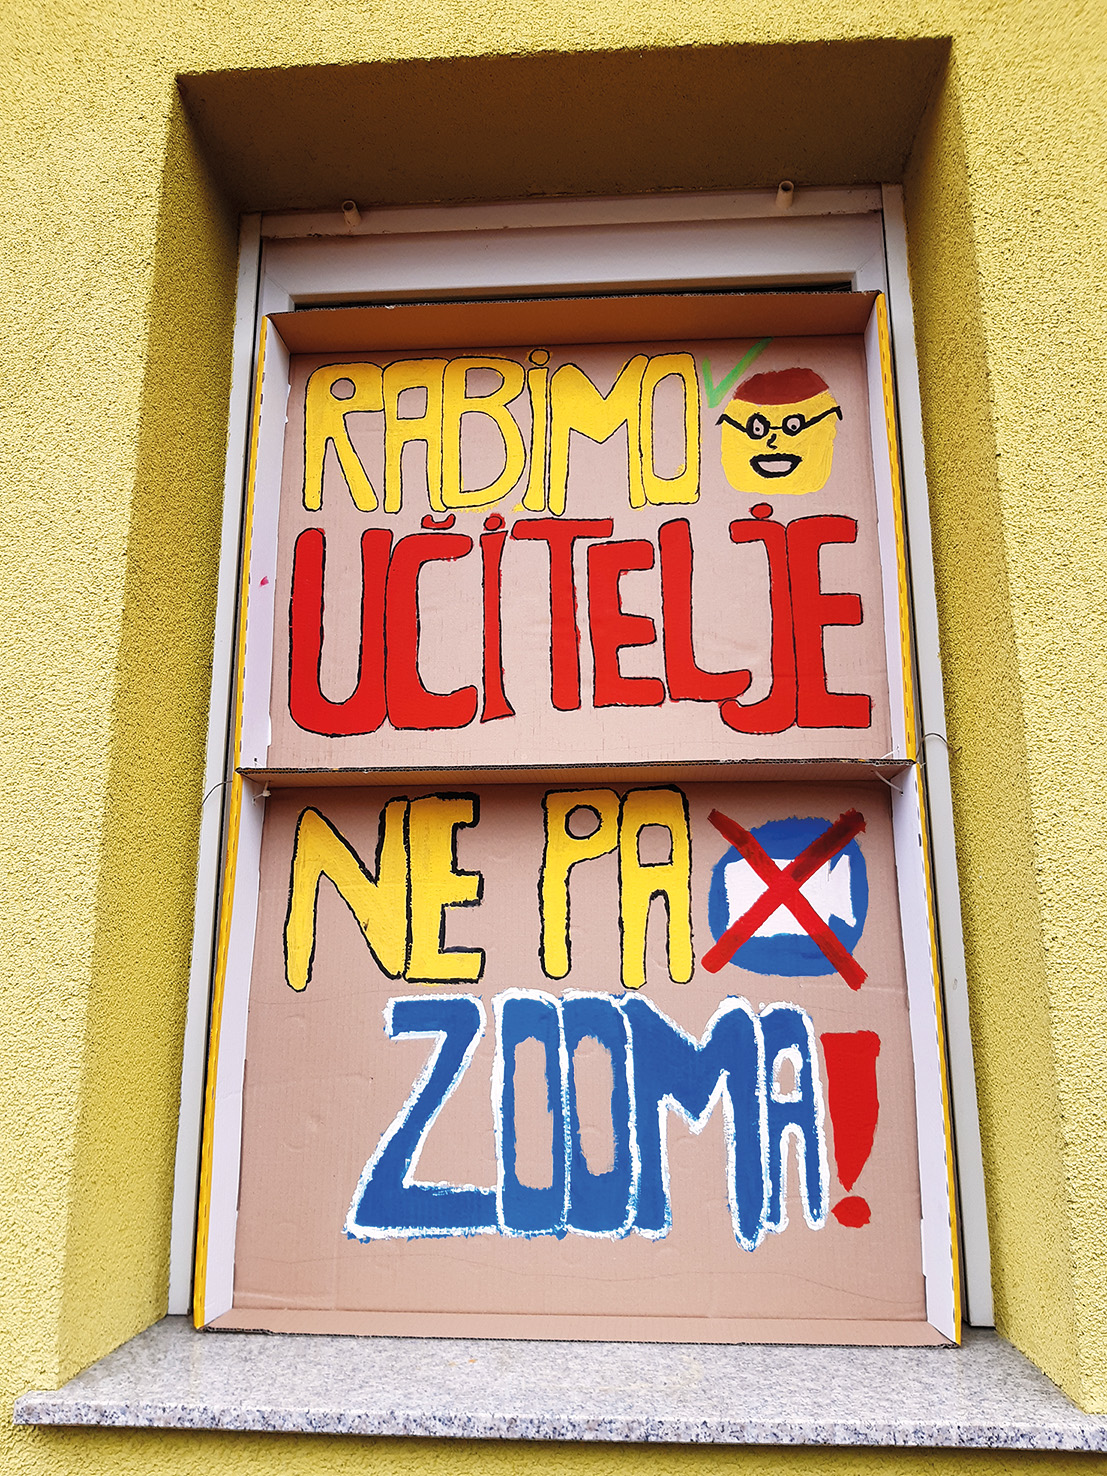 RABiMO
UČiTELjE
NE PA
ZOOMA!